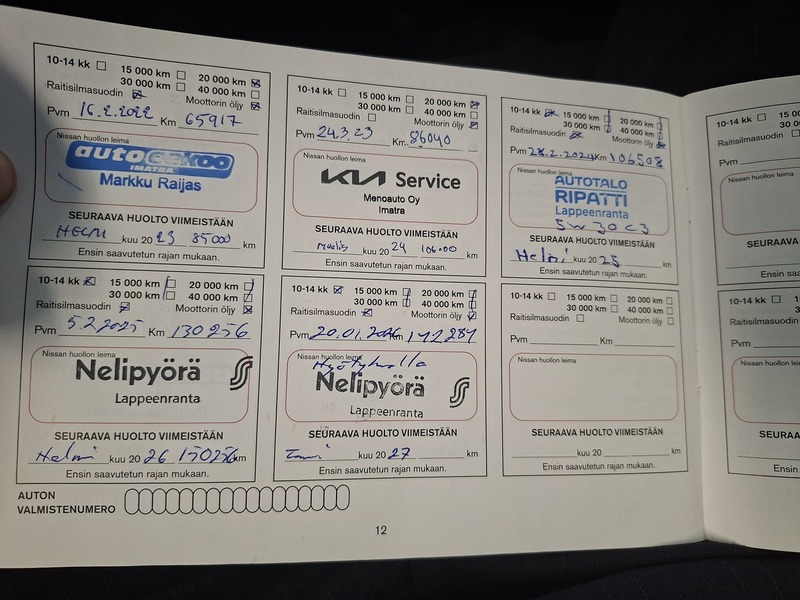 10-14 kk 15 000 km 20 000 km
30 000 km 40 000 km
Raitisilmasuodin Moottorin öljy
Pvm 16.2.2022 Km 65917
Nissan huollon leima
autoeekoo
IMATRA
Markku Raijas
SEURAAVA HUOLTO VIIMEISTÄÄN
HELMI kuu 2023 85000 km
Ensin saavutetun rajan mukaan.
10-14 kk 15 000 km 20 000 km
30 000 km 40 000 km
Raitisilmasuodin Moottorin öljy
Pvm 24.3.23 Km 86040
Nissan huollon leima
KIA Service
Menoauto Oy
Imatra
SEURAAVA HUOLTO VIIMEISTÄÄN
Maalis kuu 2024 106000 km
Ensin saavutetun rajan mukaan.
10-14 kk 15 000 km 20 000 km
30 000 km 40 000 km
Raitisilmasuodin Moottorin öljy
Pvm 28.2.2024 Km 106508
Nissan huollon leima
AUTOTALO
RIPATTI
Lappeenranta
5W30 C3
SEURAAVA HUOLTO VIIMEISTÄÄN
Helmi kuu 2025 km
Ensin saavutetun rajan mukaan.
10-14 kk
30 0
Raitisilmasuodin
Pvm
Nissan huollon leima
SEURAAVA
Ensin saa
10-14 kk 15 000 km 20 000 km
30 000 km 40 000 km
Raitisilmasuodin Moottorin öljy
Pvm 5.2.2025 Km 130256
Nissan huollon leima
Nelipyörä
Lappeenranta
SEURAAVA HUOLTO VIIMEISTÄÄN
Helmi kuu 2026 150256 km
Ensin saavutetun rajan mukaan.
10-14 kk 15 000 km 20 000 km
30 000 km 40 000 km
Raitisilmasuodin Moottorin öljy
Pvm 20.01.2026 Km 142284
Nissan huollon leima
Nelipyörä
Lappeenranta
SEURAAVA HUOLTO VIIMEISTÄÄN
Tammi kuu 2027 km
Ensin saavutetun rajan mukaan.
10-14 kk 15 000 km 20 000 km
30 000 km 40 000 km
Raitisilmasuodin Moottorin öljy
Pvm Km
Nissan huollon leima
SEURAAVA HUOLTO VIIMEISTÄÄN
kuu 20 km
Ensin saavutetun rajan mukaan.
10-14 kk 1
30
Raitisilmasuodin
Pvm
Nissan huollon leima
SEURAAVA
Ensin saa
AUTON
VALMISTENUMERO
12